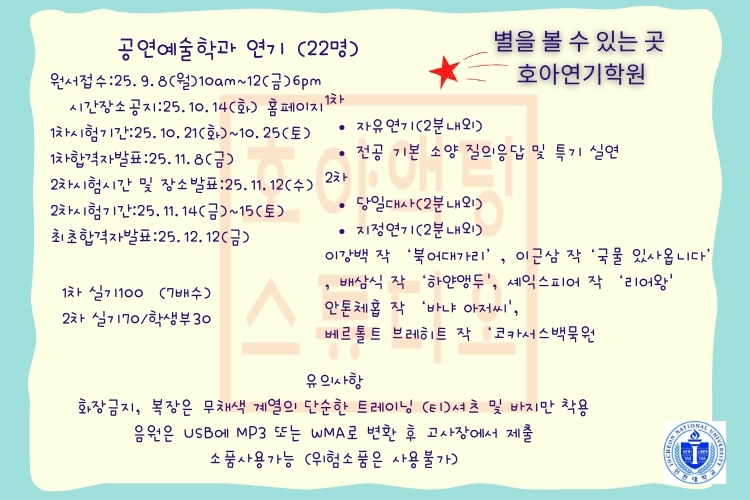 공연예술학과 연기 (22명)
별을 볼 수 있는 곳
호아연기학원
원서접수:25.9.8(월)10am~12(금)6pm
시간장소공지:25.10.14(화) 홈페이지
1차시험기간:25.10.21(화)~10.25(토)
1차합격자발표:25.11.8(금)
2차시험시간 및 장소발표:25.11.12(수)
2차시험기간:25.11.14(금)~15(토)
최초합격자발표:25.12.12(금)
1차 실기100 (7배수)
2차 실기70/학생부30
1차
• 자유연기(2분내외)
• 전공 기본 소양 질의응답 및 특기 실연
2차
• 당일대사(2분내외)
• 지정연기(2분내외)
이강백 작 ‘북어대가리’ , 이근삼 작 ‘국물 있사옵니다’
, 배삼식 작 ‘하얀앵두', 셰익스피어 작 ‘리어왕'
안톤체홉 작 ‘바냐 아저씨',
베르톨트 브레히트 작 ‘코카서스백묵원
유의사항
화장금지, 복장은 무채색 계열의 단순한 트레이닝 (티)셔츠 및 바지만 착용
음원은 USB에 MP3 또는 WMA로 변환 후 고사장에서 제출
소품사용가능 (위험소품은 사용불가)
호아액팅
스튜디오
INCHEON NATIONAL UNIVERSITY
인천대학교